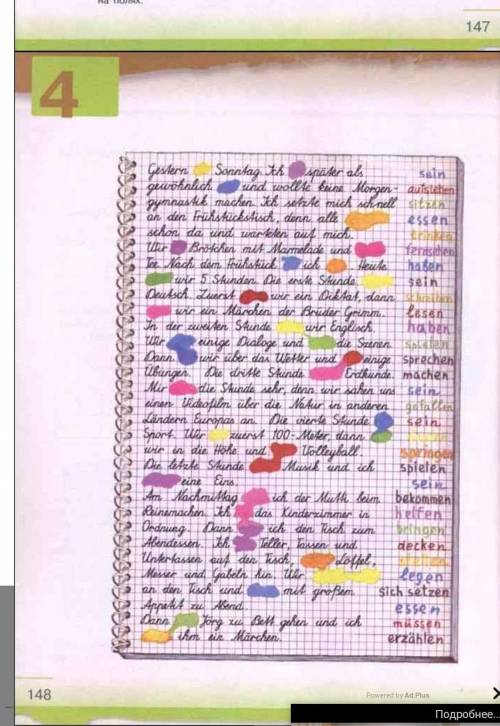 на полях.
147
4
Gestern Sonntag. Ich später als sein
gewöhnlich und wollte keine Morgen- aufstehen
gymnastik machen. Ich setzte mich schnell sitzen
an den Frühstückstisch, denn alle essen
schon da und warteten auf mich. trinken
Wir Brötchen mit Marmelade und fernsehen
Tee. Nach dem Frühstück ich Heute haben
wir 5 Stunden. Die erste Stunde sein
Deutsch. Zuerst wir ein Diktat, dann schreiben
wir ein Märchen der Brüder Grimm. lesen
In der zweiten Stunde wir Englisch. haben
Wir einige Dialoge und die Szenen. spielen
Dann wir über das Wetter und einige sprechen
Übungen. Die dritte Stunde Erdkunde. machen
Mir die Stunde sehr, denn wir sahen uns sein
einen Videofilm über die Natur in anderen gefallen
Ländern Europas an. Die vierte Stunde sein
Sport. Wir zuerst 100-Meter, dann
wir in die Höhe und Volleyball. springen
Die letzte Stunde Musik und ich spielen
eine Eins. sein
Am Nachmittag ich der Mutti beim bekommen
Reinemachen. Ich das Kinderzimmer in helfen
Ordnung. Dann ich den Tisch zum bringen
Abendessen. Ich Teller, Tassen und decken
Untertassen auf den Tisch, Löffel,
Messer und Gabeln hin. Wir legen
an den Tisch und mit großem sich setzen
Appetit zu Abend. essen
Dann Jörg zu Bett gehen und ich müssen
ihm ein Märchen. erzählen
148
Powered by Ad.Plus
Подробнее...